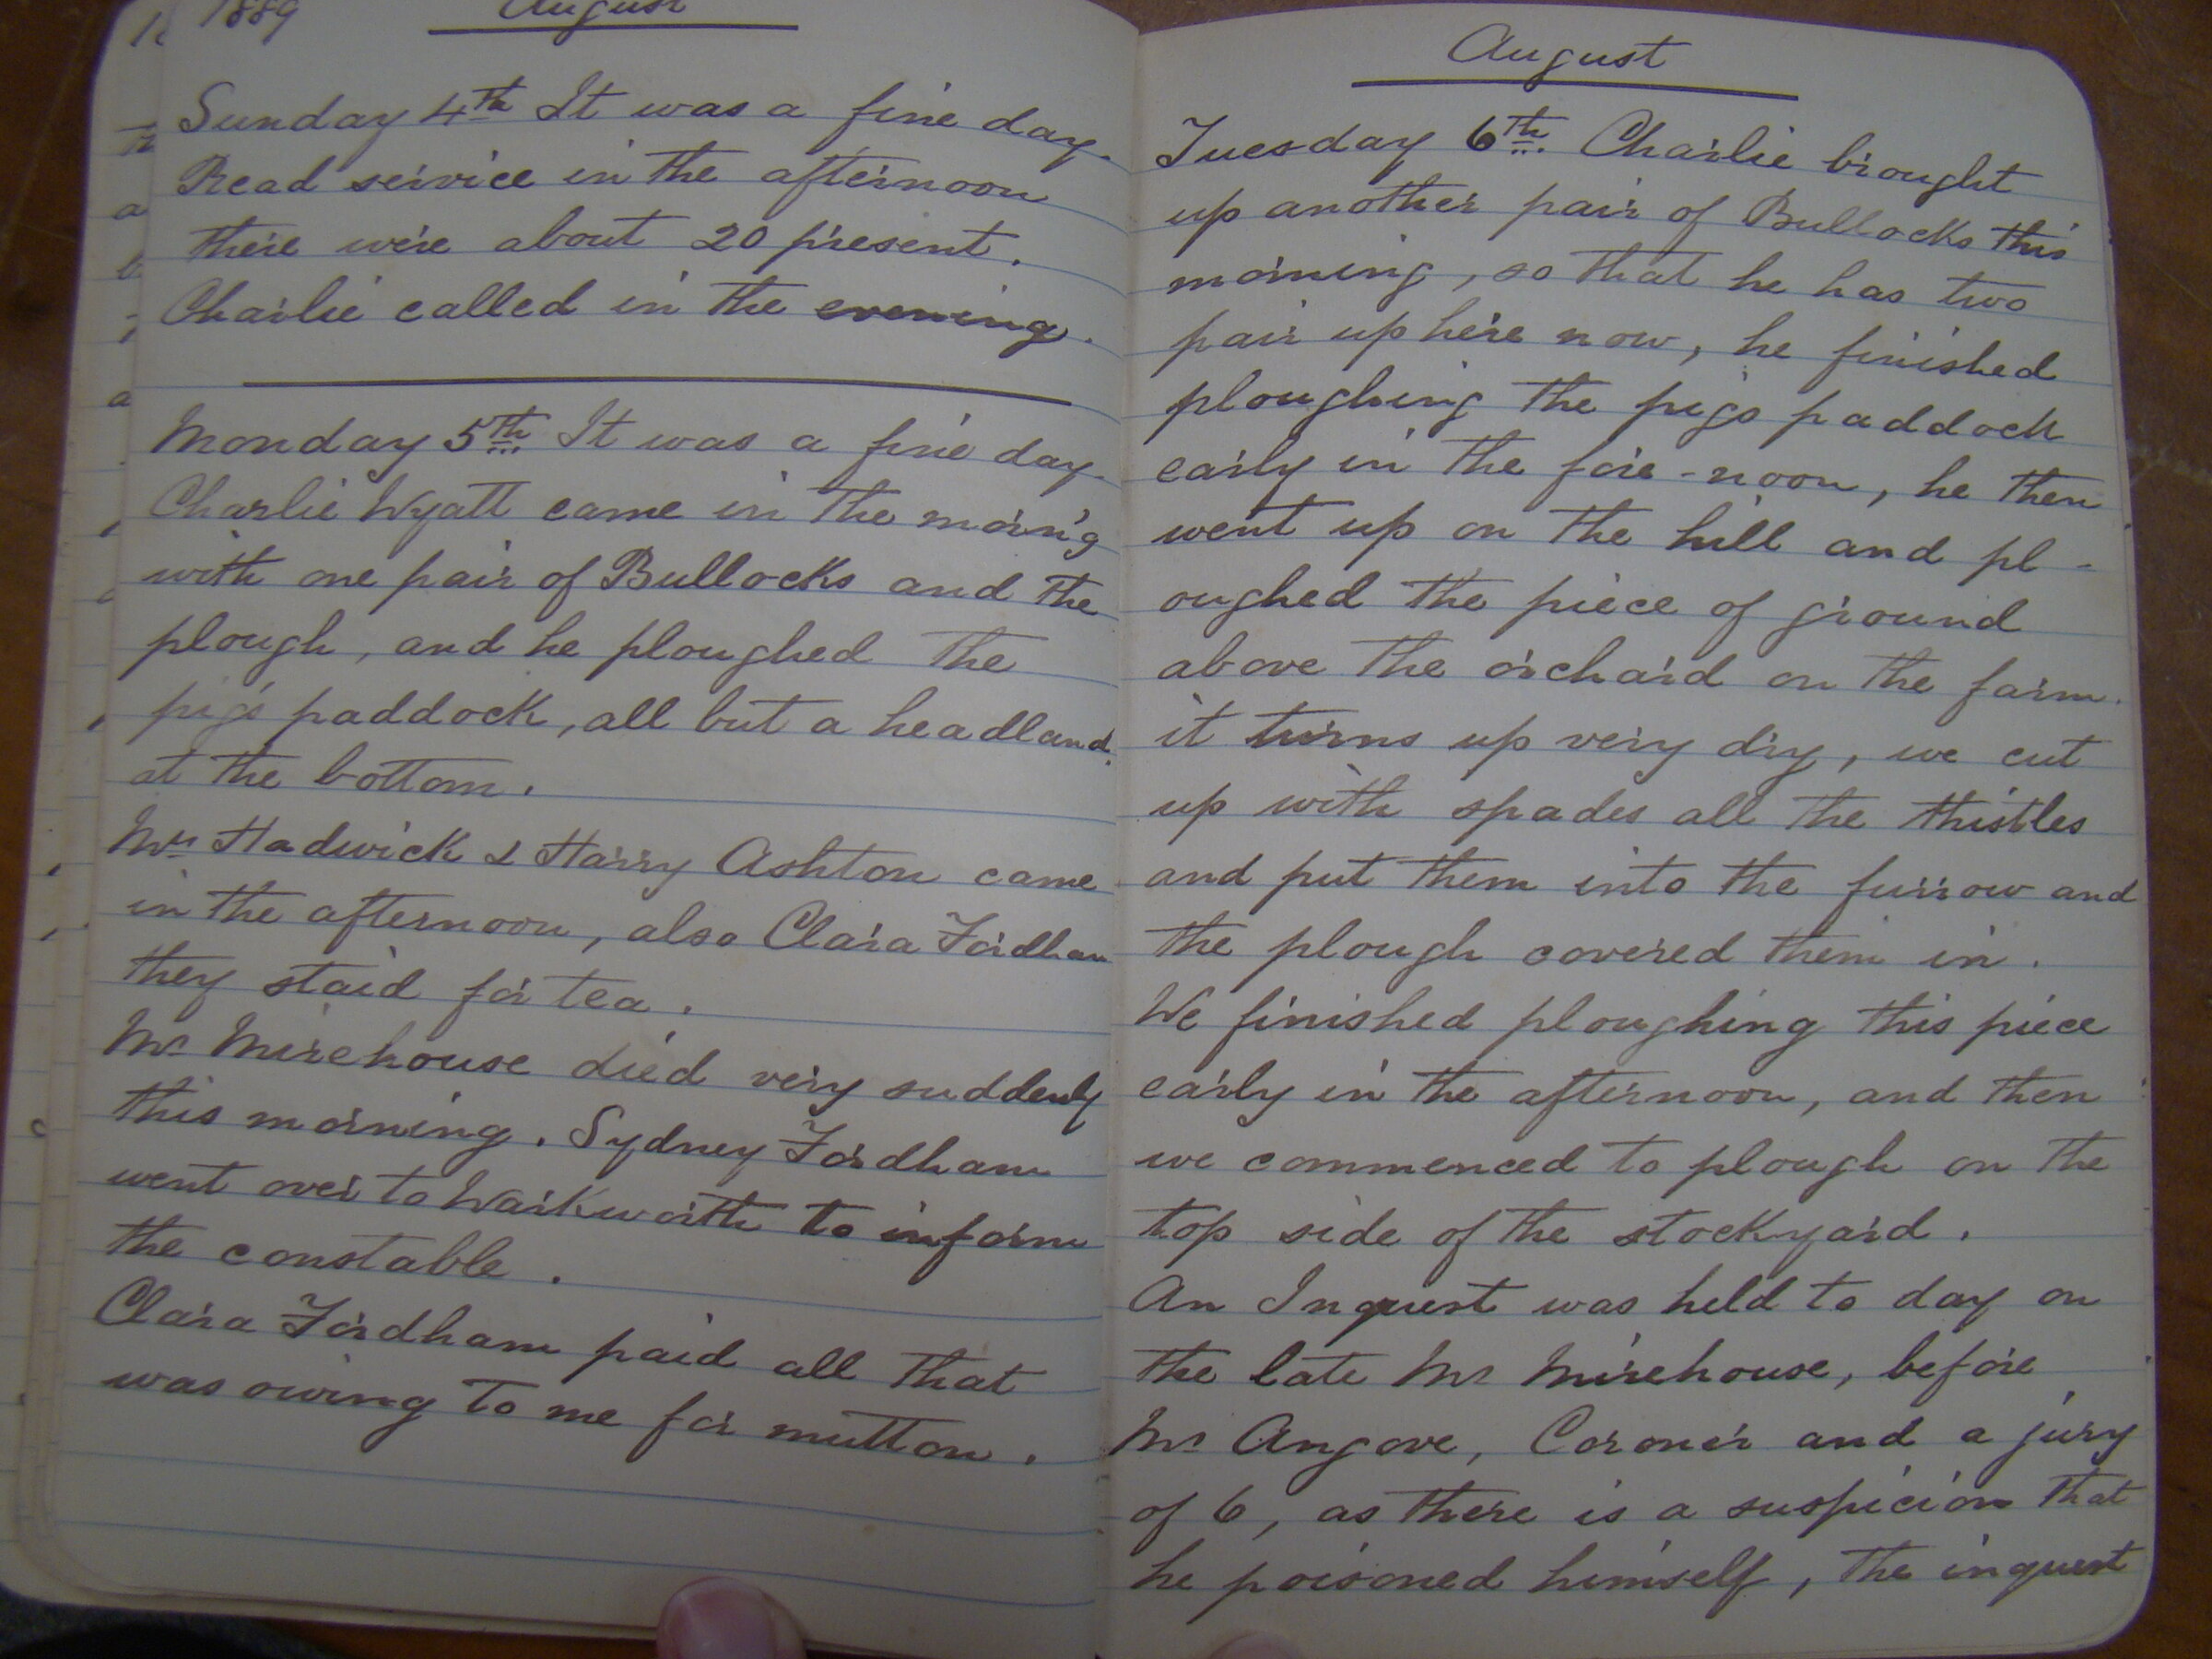 1889 August
Sunday 4th It was a fine day.
Read service in the afternoon
there were about 20 present.
Charlie called in the evening.
Monday 5th It was a fine day.
Charlie Wyatt came in the morn'g
with one pair of Bullocks and the
plough, and he ploughed the
pig's paddock, all but a headland.
at the bottom.
Mrs Hadwick & Harry Ashton came
in the afternoon, also Clara Fordham
they staid for tea.
Mr Mirehouse died very suddenly
this morning. Sydney Fordham
went over to Warkworth to inform
the constable.
Clara Fordham paid all that
was owing to me for mutton.
August
Tuesday 6th. Charlie brought
up another pair of Bullocks this
morning, so that he has two
pair up here now, he finished
ploughing the pigs paddock
early in the fore-noon, he then
went up on the hill and pl-
oughed the piece of ground
above the orchard on the farm.
it turns up very dry, we cut
up with spades all the thistles
and put them into the furrow and
the plough covered them in.
We finished ploughing this piece
early in the afternoon, and then
we commenced to plough on the
top side of the stockyard.
An Inquest was held to day on
the late Mr Mirehouse, before
Mr Angove, Coroner and a jury
of 6, as there is a suspicion that
he poisoned himself, the inquest